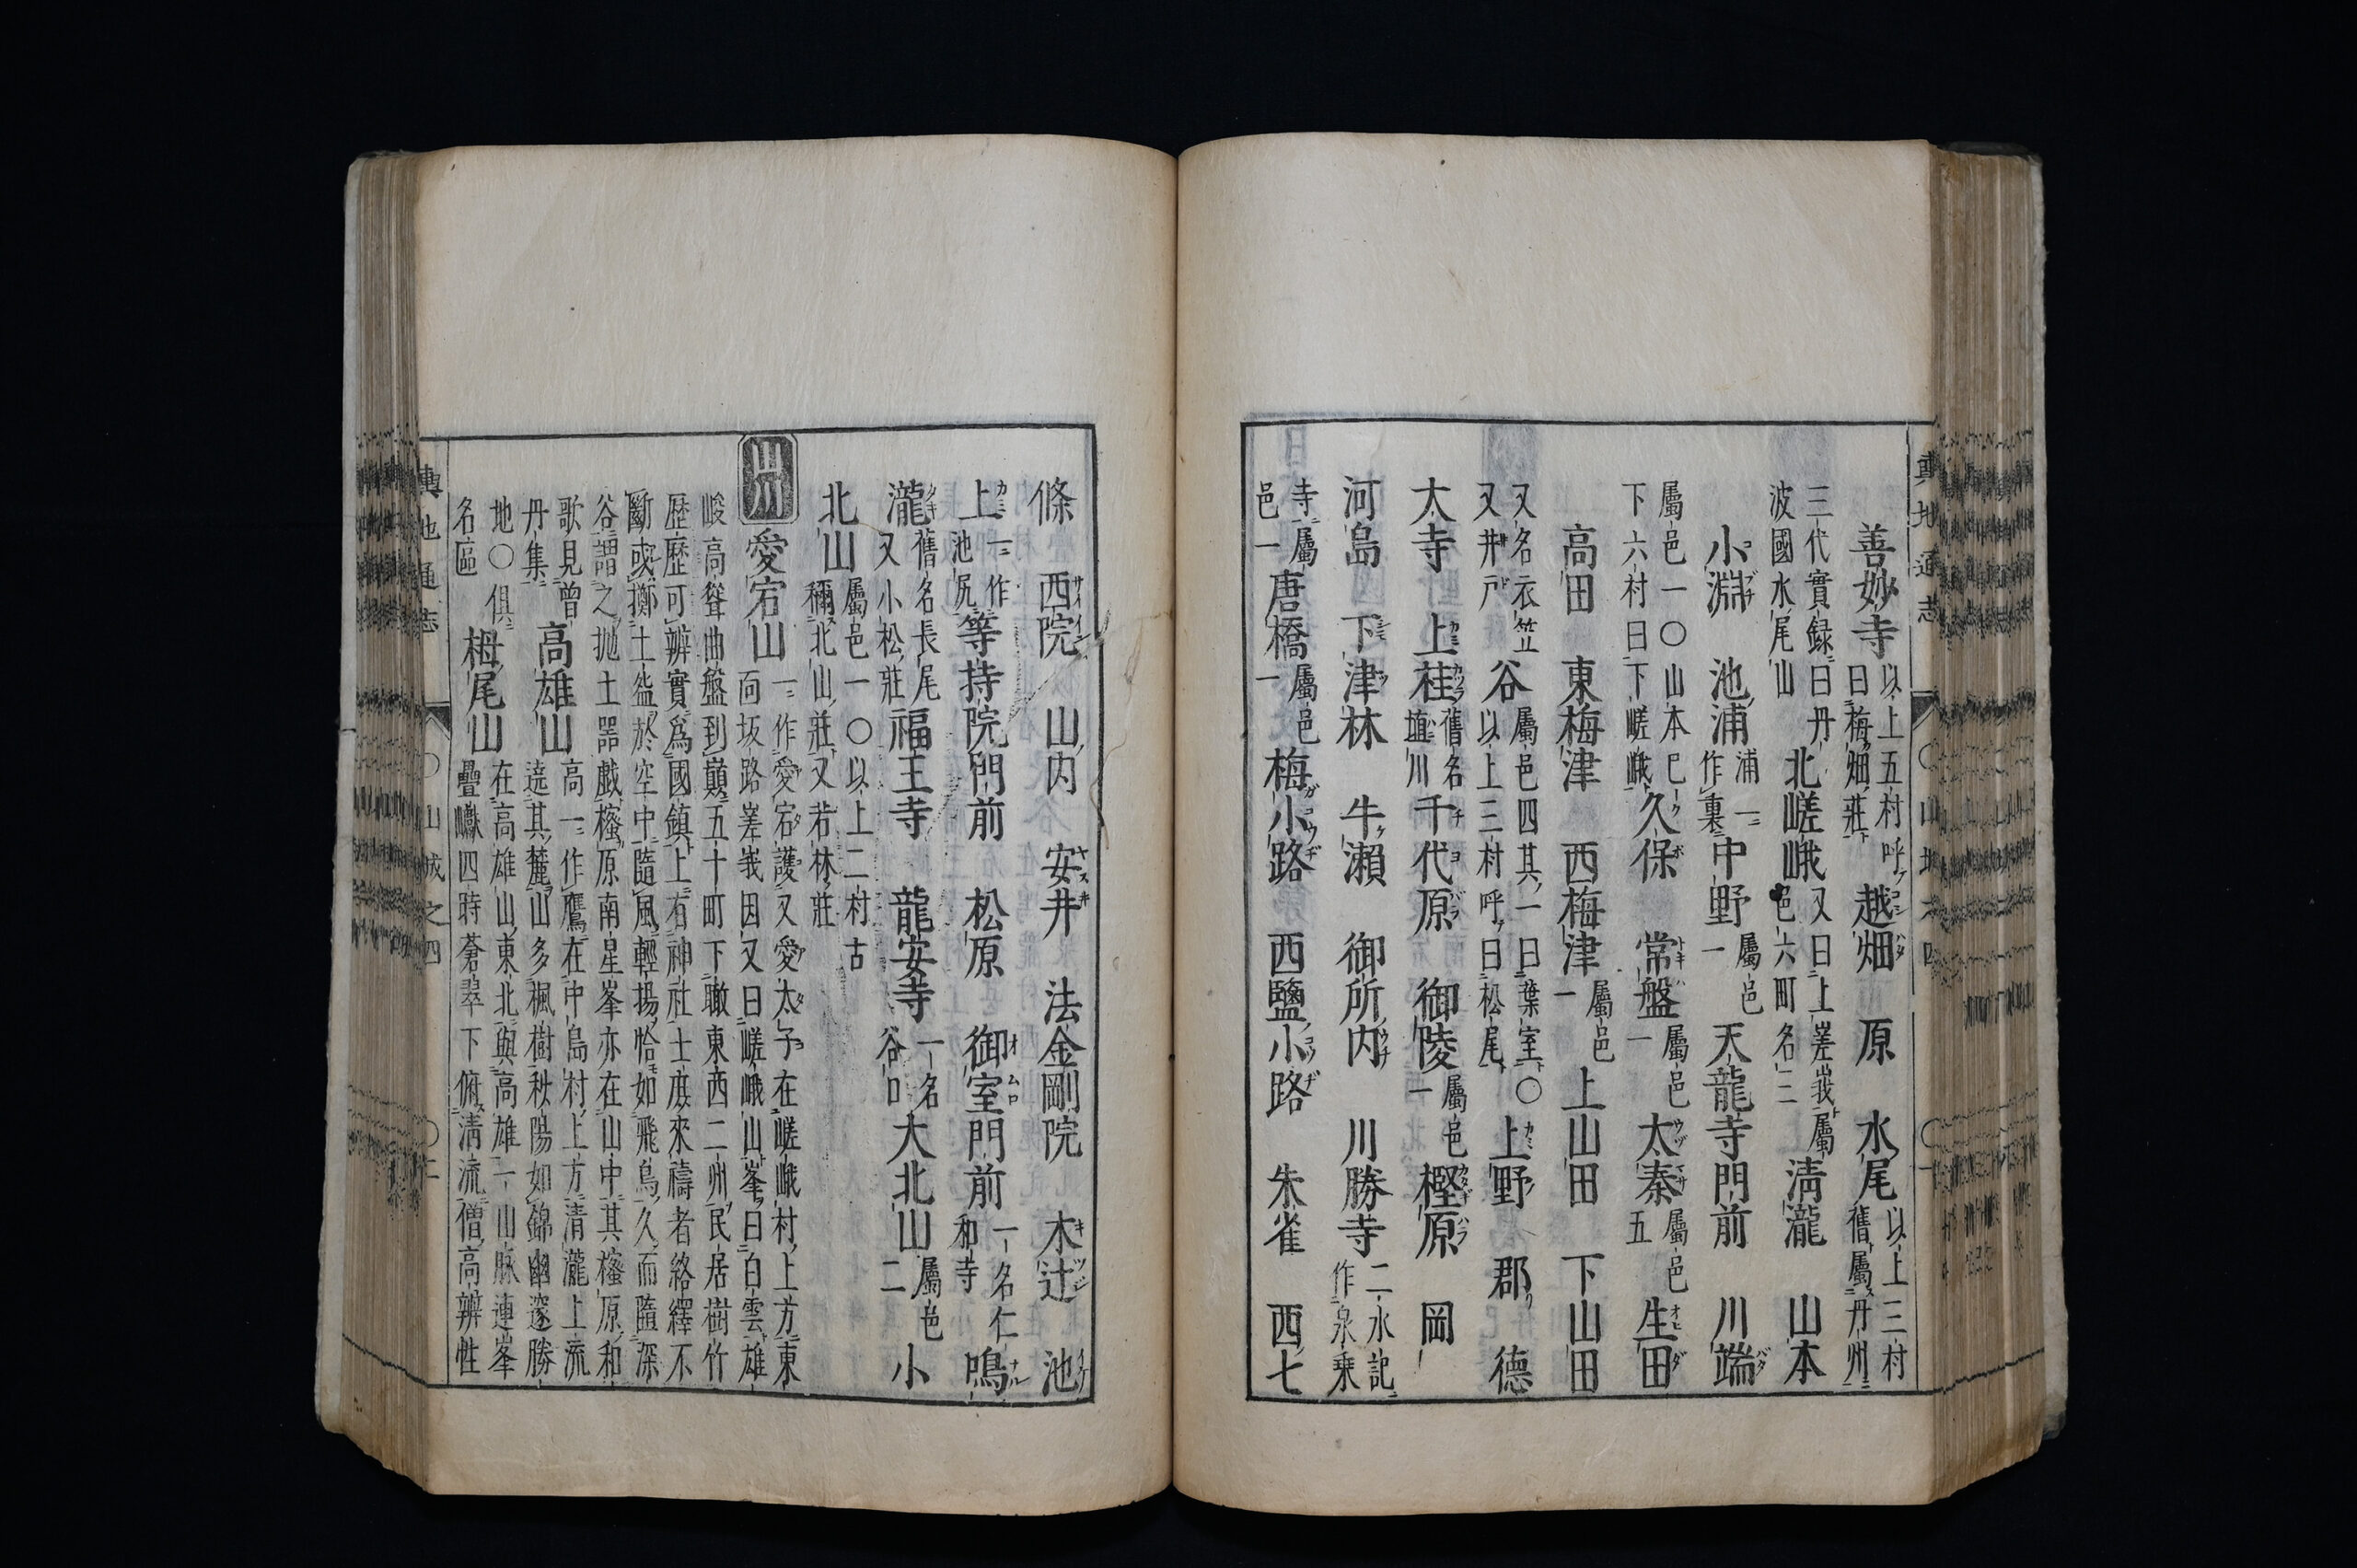 善妙寺 以上五村呼曰梅畑莊 越畑 原 水尾 以上三村舊屬丹州
三代實録曰丹波國水尾山 北嵯峨 又曰上嵯峨屬邑六町名二 清瀧 山本
小淵 池浦 浦一作裏 中野 屬邑一 天龍寺門前 川端
屬邑一〇山本巳下六村曰下嵯峨 久保 常盤 屬邑一 太秦 屬邑五 生田
高田 東梅津 西梅津 屬邑一 上山田 下山田
又名衣笠又井戸 谷 屬邑四其一曰葉室〇以上三村呼曰松尾 上野 郡 德
大寺 上桂 舊名埴川 千代原 御陵 屬邑一 樫原 岡
河島 下津林 牛瀬 御所内 川勝寺 二水記作泉乗
寺屬邑一 唐橋 屬邑一 梅小路 西鹽小路 朱雀 西七
條 西院 山内 安井 法金剛院 木辻 池
上 一作池尻 等持院門前 松原 御室門前 一名仁和寺 鳴
瀧 舊名長尾又小松莊 福王寺 龍安寺 一名谷口 大北山 屬邑二 小
北山 屬邑一〇以上二村古稱北山莊又若林莊
山川 愛宕山 一作愛宕護又愛太子在嵯峨村上方東面坂路嵳峩因又曰嵯峨山峯曰白雲雄
峻高聳曲盤到巔五十町下瞰東西二州民居樹竹
歴歴可辨實爲國鎮上有神社士庶來禱者絡繹不
斷或擲土盃於空中隨風輕揚恰如飛鳥久而隨深
谷謂之抛土器戯樒原南星峯亦在山中其樒原和
歌見曾丹集 高雄山 高一作鷹在中島村上方清瀧上流遶其麓山多楓樹秋陽如錦幽邃勝
地〇俱名區 栂尾山 在高雄山東北與高雄一山脉連峯疊巘四時蒼翠下俯清流僧高辨性
輿地通志 〇山城之四 〇二